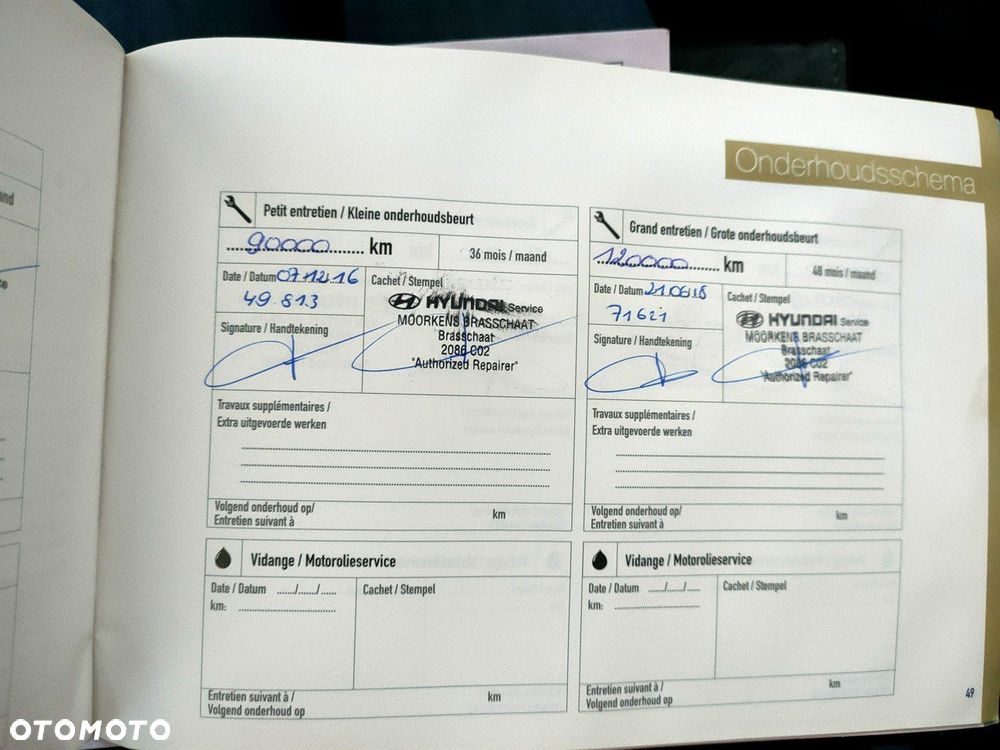 Onderhoudsschema
Petit entretien / Kleine onderhoudsbeurt
90000 km
36 mois / maand
Date / Datum 07.12.16
49.813
Signature / Handtekening
Cachet / Stempel
HYUNDAI Service
MOORKENS BRASSCHAAT
Brasschaat
2086 C02
"Authorized Repairer"
Travaux supplémentaires /
Extra uitgevoerde werken
Volgend onderhoud op/
Entretien suivant à
km
Grand entretien / Grote onderhoudsbeurt
120000 km
48 mois / maand
Date / Datum 21.06.18
71621
Signature / Handtekening
Cachet / Stempel
HYUNDAI Service
MOORKENS BRASSCHAAT
Brasschaat
2086 C02
"Authorized Repairer"
Travaux supplémentaires /
Extra uitgevoerde werken
Volgend onderhoud op/
Entretien suivant à
km
Vidange / Motorolieservice
Date / Datum ....../....../......
km:
Cachet / Stempel
Entretien suivant à /
Volgend onderhoud op
km
Vidange / Motorolieservice
Date / Datum ....../....../......
km:
Cachet / Stempel
Entretien suivant à /
Volgend onderhoud op
km
49
OTOMOTO